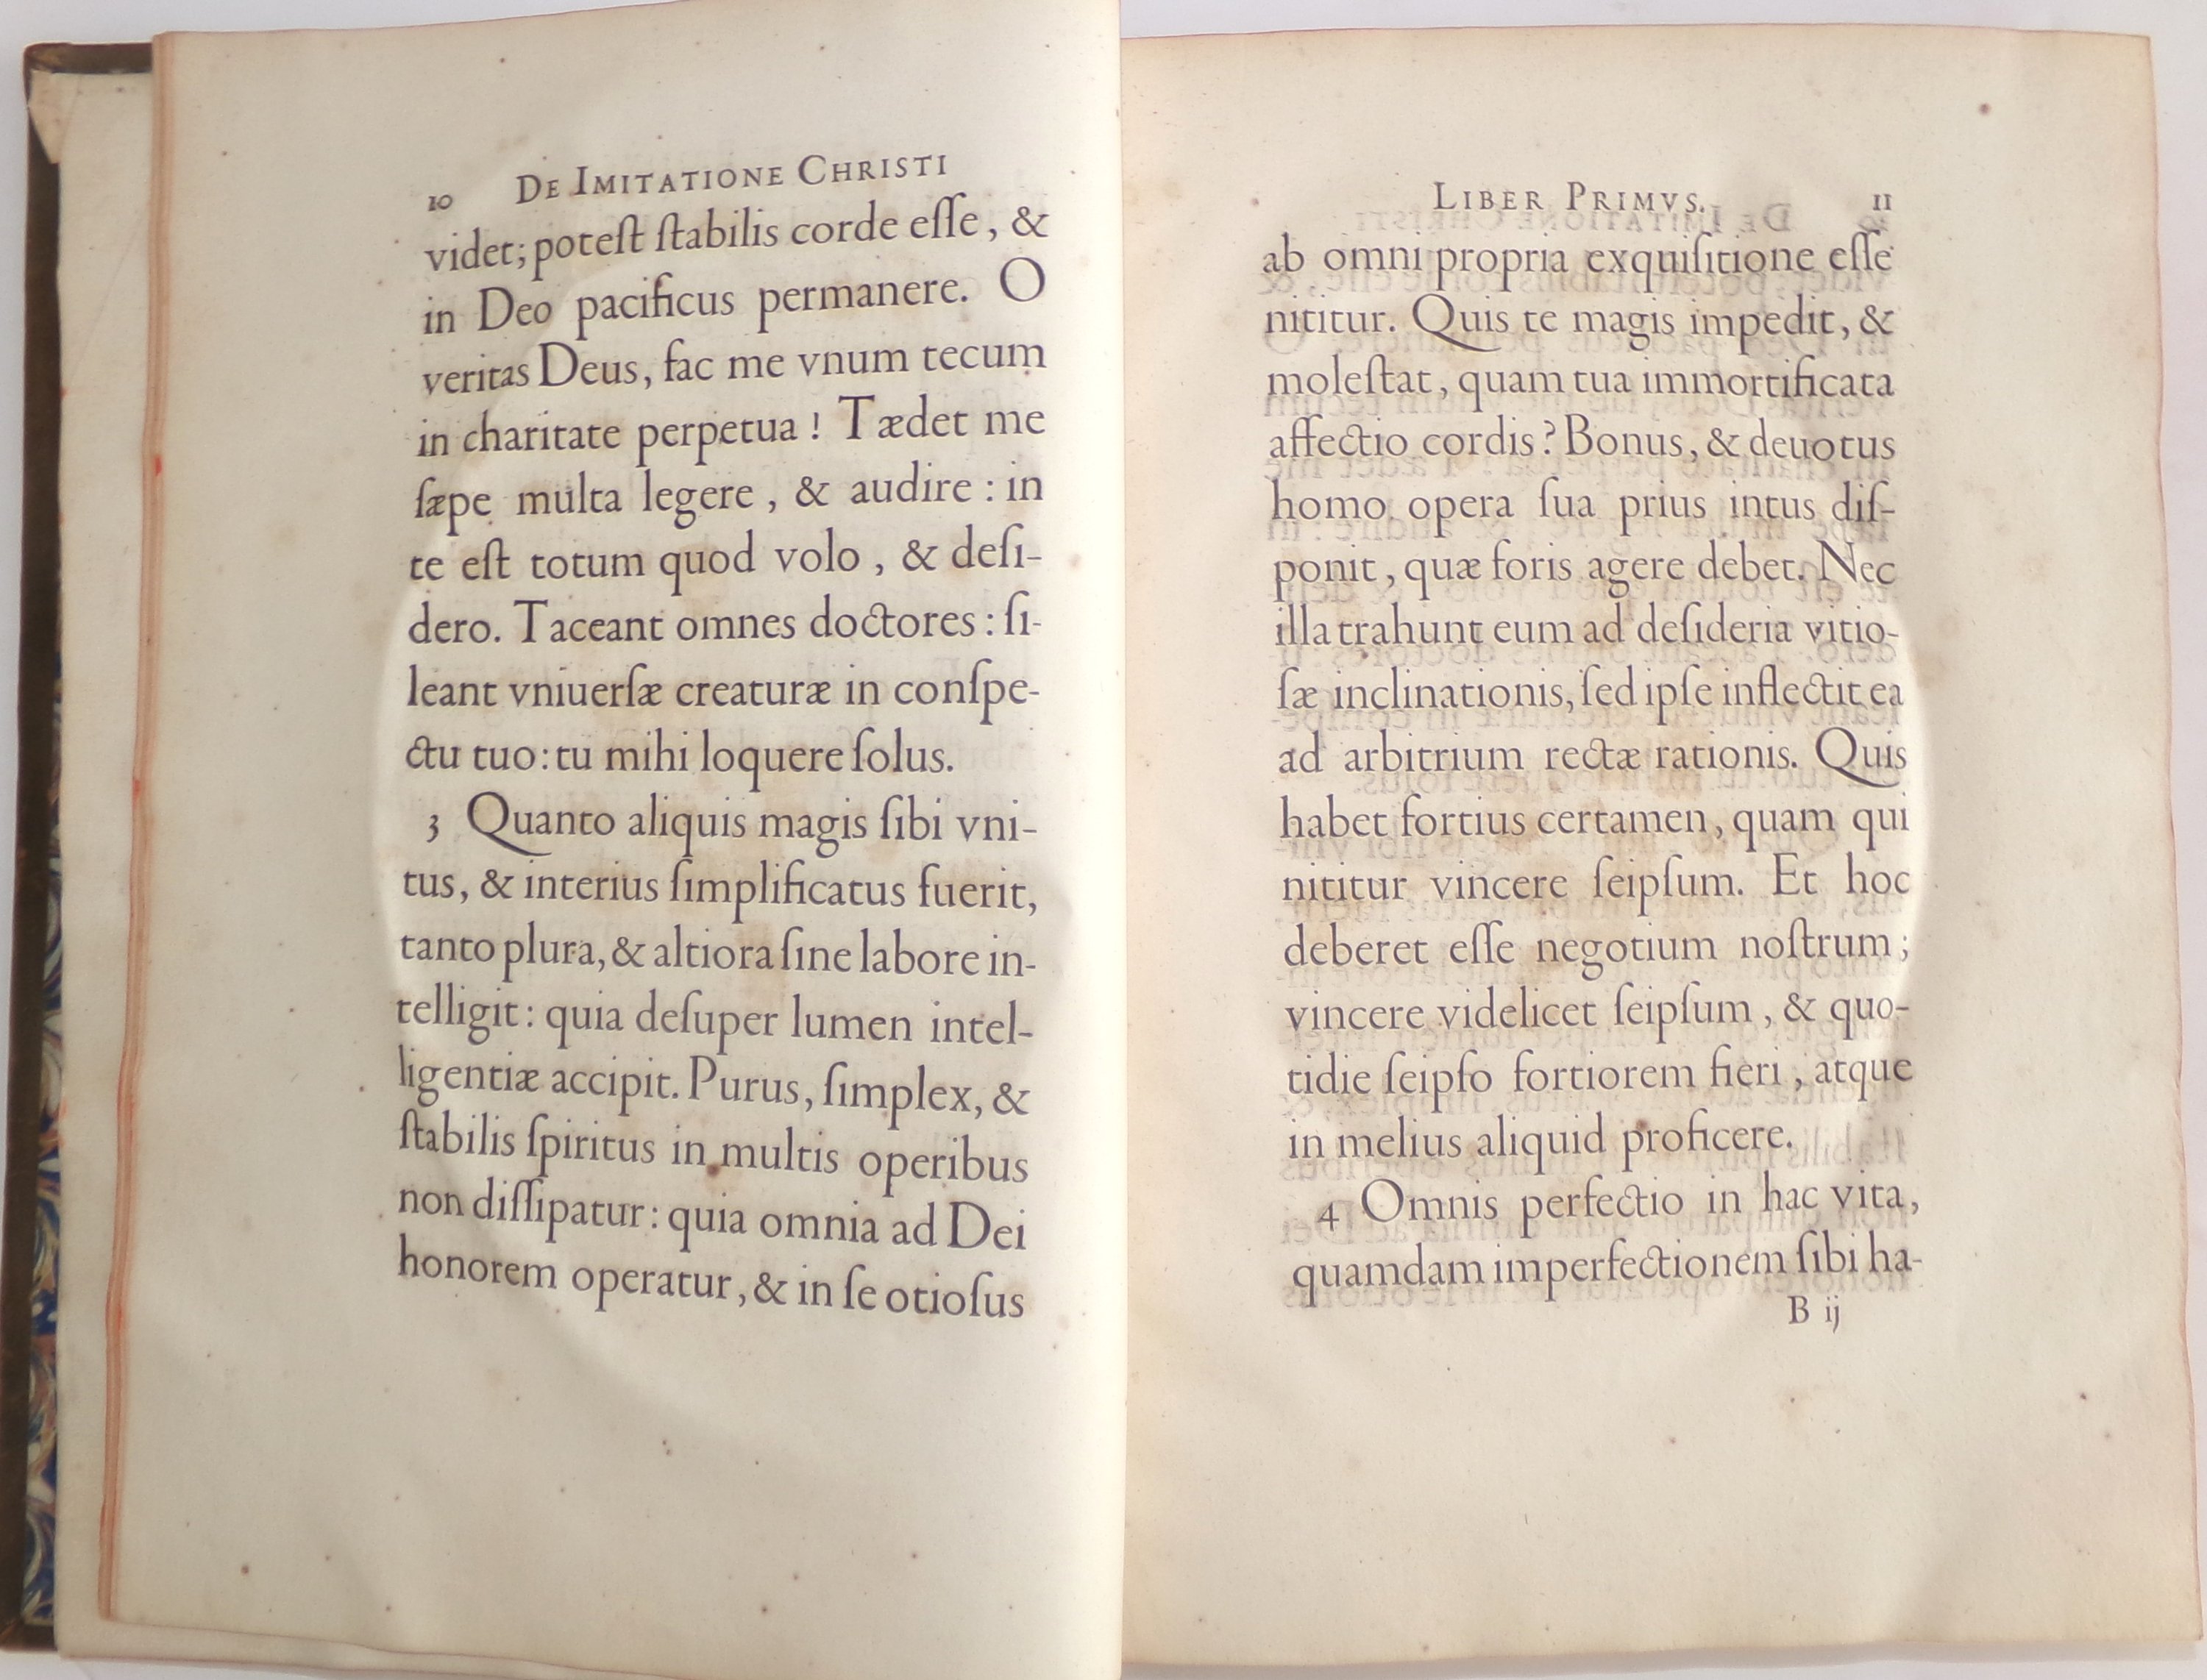 10 DE IMITATIONE CHRISTI
videt; poteſt ſtabilis corde eſſe, &
in Deo pacificus permanere. O
veritas Deus, fac me vnum tecum
in charitate perpetua! Tædet me
ſæpe multa legere, & audire: in
te eſt totum quod volo, & deſi-
dero. Taceant omnes doctores: ſi-
leant vniuerſæ creaturæ in conſpe-
ctu tuo: tu mihi loquere ſolus.
3 Quanto aliquis magis ſibi vni-
tus, & interius ſimplificatus fuerit,
tanto plura, & altiora ſine labore in-
telligit: quia deſuper lumen intel-
ligentiæ accipit. Purus, ſimplex, &
ſtabilis ſpiritus in multis operibus
non diſſipatur: quia omnia ad Dei
honorem operatur, & in ſe otioſus
LIBER PRIMVS. 11
ab omni propria exquiſitione eſſe
nititur. Quis te magis impedit, &
moleſtat, quam tua immortificata
affectio cordis? Bonus, & deuotus
homo opera ſua prius intus diſ-
ponit, quæ foris agere debet. Nec
illa trahunt eum ad deſideria vitio-
ſæ inclinationis, ſed ipſe inflectit ea
ad arbitrium rectæ rationis. Quis
habet fortius certamen, quam qui
nititur vincere ſeipſum. Et hoc
deberet eſſe negotium noſtrum;
vincere videlicet ſeipſum, & quo-
tidie ſeipſo fortiorem fieri, atque
in melius aliquid proficere.
4 Omnis perfectio in hac vita,
quamdam imperfectionem ſibi ha-
B ij